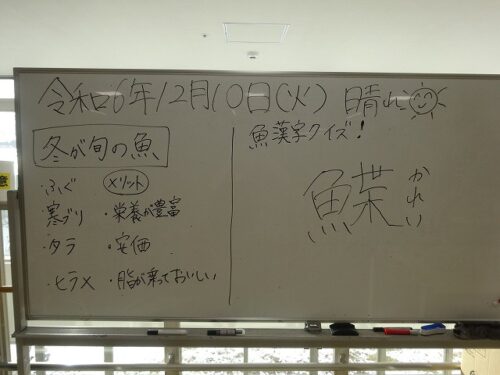 令和6年12月10日(火) 晴れ
冬が旬の魚
ふぐ
寒ブリ
タラ
ヒラメ
メリット
・栄養が豊富
・安価
・脂が乗っておいしい
魚漢字クイズ!
鰈
かれい